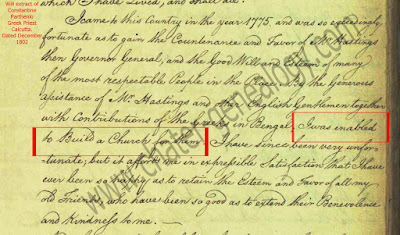 Will extract of
Constantine
Parthenio
Greek Priest
Calcutta.
Dated December
1802
which I have Lived, and shall die.
I came to this Country in the year 1775, and was so exceedingly
fortunate as to gain the Countenance and Favor of Mr. Hastings
then Governor General, and the Good Will and Esteem of many
of the most respectable People in the place. By the Generous
assistance of Mr. Hastings and other English Gentlemen together
with Contributions of the Greeks in Bengal, I was enabled
to Build a Church for them. I have since been very unfor-
tunate, but it affords me inexpressible Satisfaction that I have
ever been so happy as to retain the Esteem and Favor of all my
old Friends, who have been so good as to extend their Benevolence
and kindness to me.